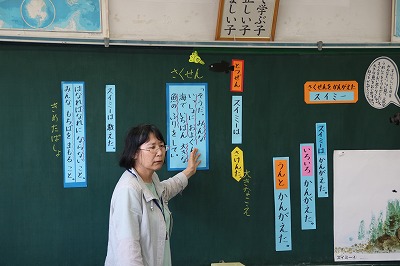 学ぶ子
正しい子
よい子
さくせんをかんがえた
スイミー
スイミーは
かんがえた。
いろいろ
かんがえた。
うんと
かんがえた。
とつぜん
スイミーは
さけんだ。
大きなこえ
さくせん
海でいちばん大きな
魚のふりをして。
スイミーは教えた。
はなればなれにならないこと。
みんな、もちばをまもること。
きめたばしょ
スイミー